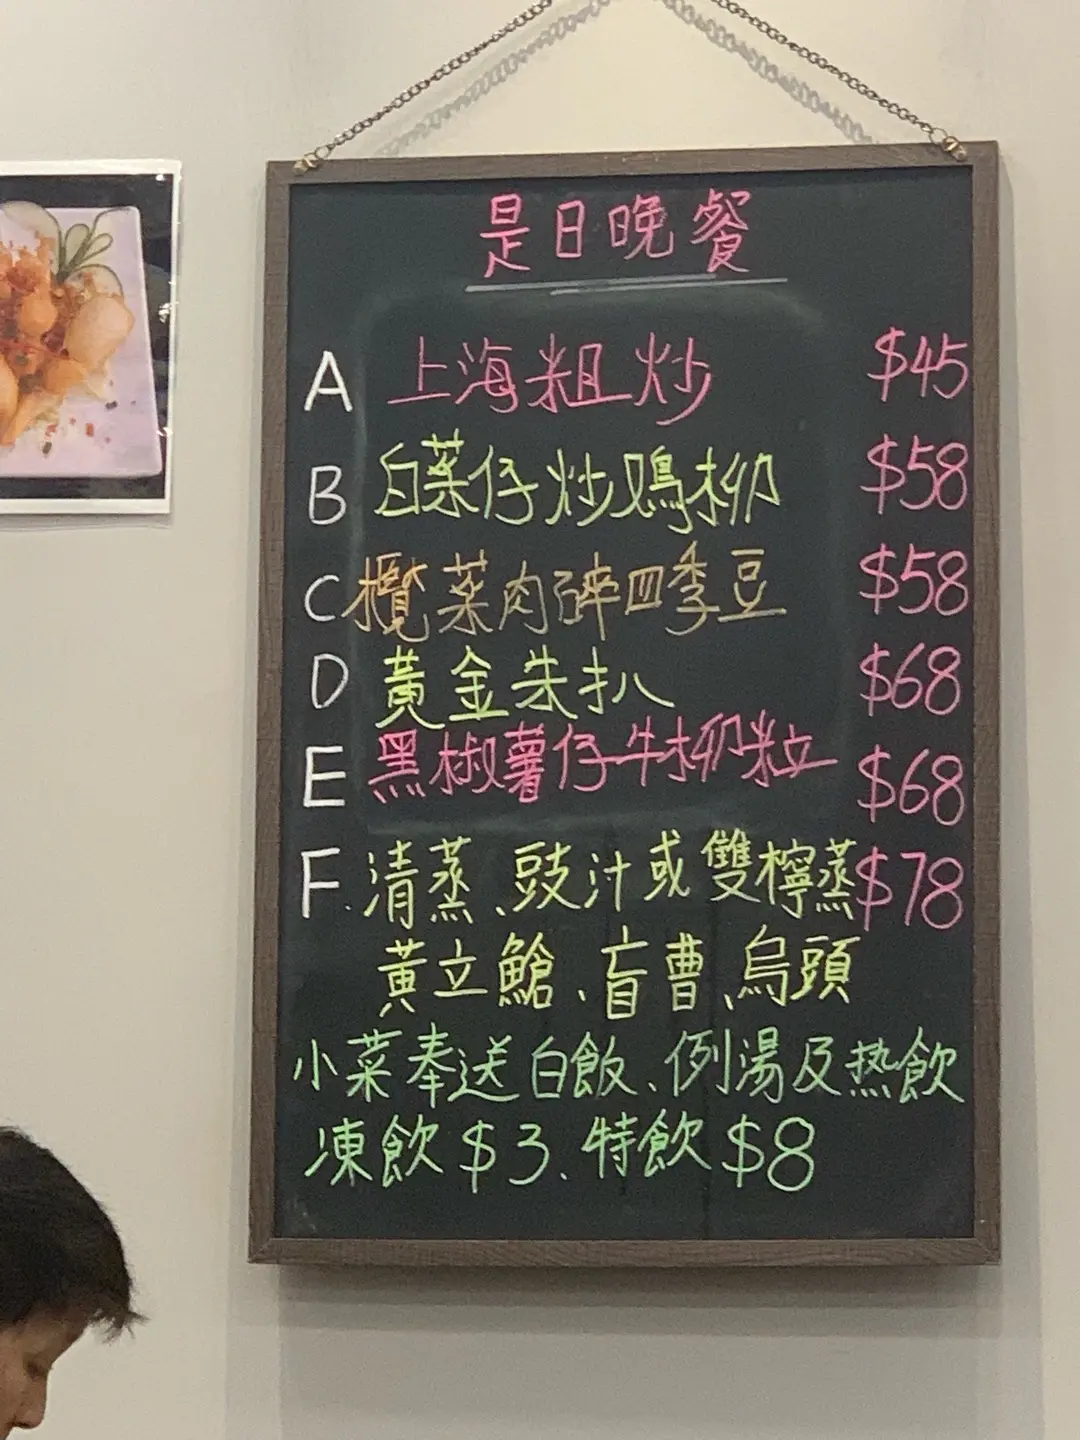 是日晚餐
A 上海粗炒 $45
B 白菜仔炒鸡柳 $58
C 欖菜肉碎四季豆 $58
D 黃金朱扒 $68
E 黑椒薯仔牛柳粒 $68
F. 清蒸、豉汁或雙檸蒸 $78
黃立鯧、盲曹、烏頭
小菜奉送白飯、例湯及热飲
凍飲$3、特飲$8